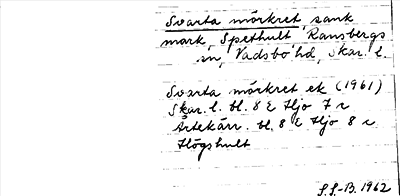 Svarta mörkret, sank
mark, Spethult Ransbergs
sn, Vadsbo hd, Skar. l.
Svarta mörkret ek (1961)
Skar. l. bl. 8 E Hjo 7 r
Ärtekärr. bl. 8 E Hjo 8 r
Högshult
S.S-B. 1962